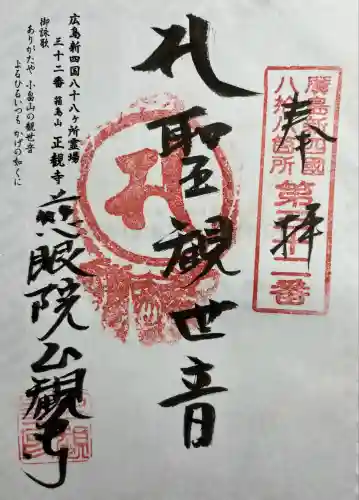 廣島新四國
八拾八ケ所
第三十二番
奉拝
聖観世音
広島新四国八十八ヶ所霊場
三十二番 箱島山 正観寺
御詠歌
ありがたや 小畠山の観世音
よるひるいつも かげの如くに
慈眼院正観寺